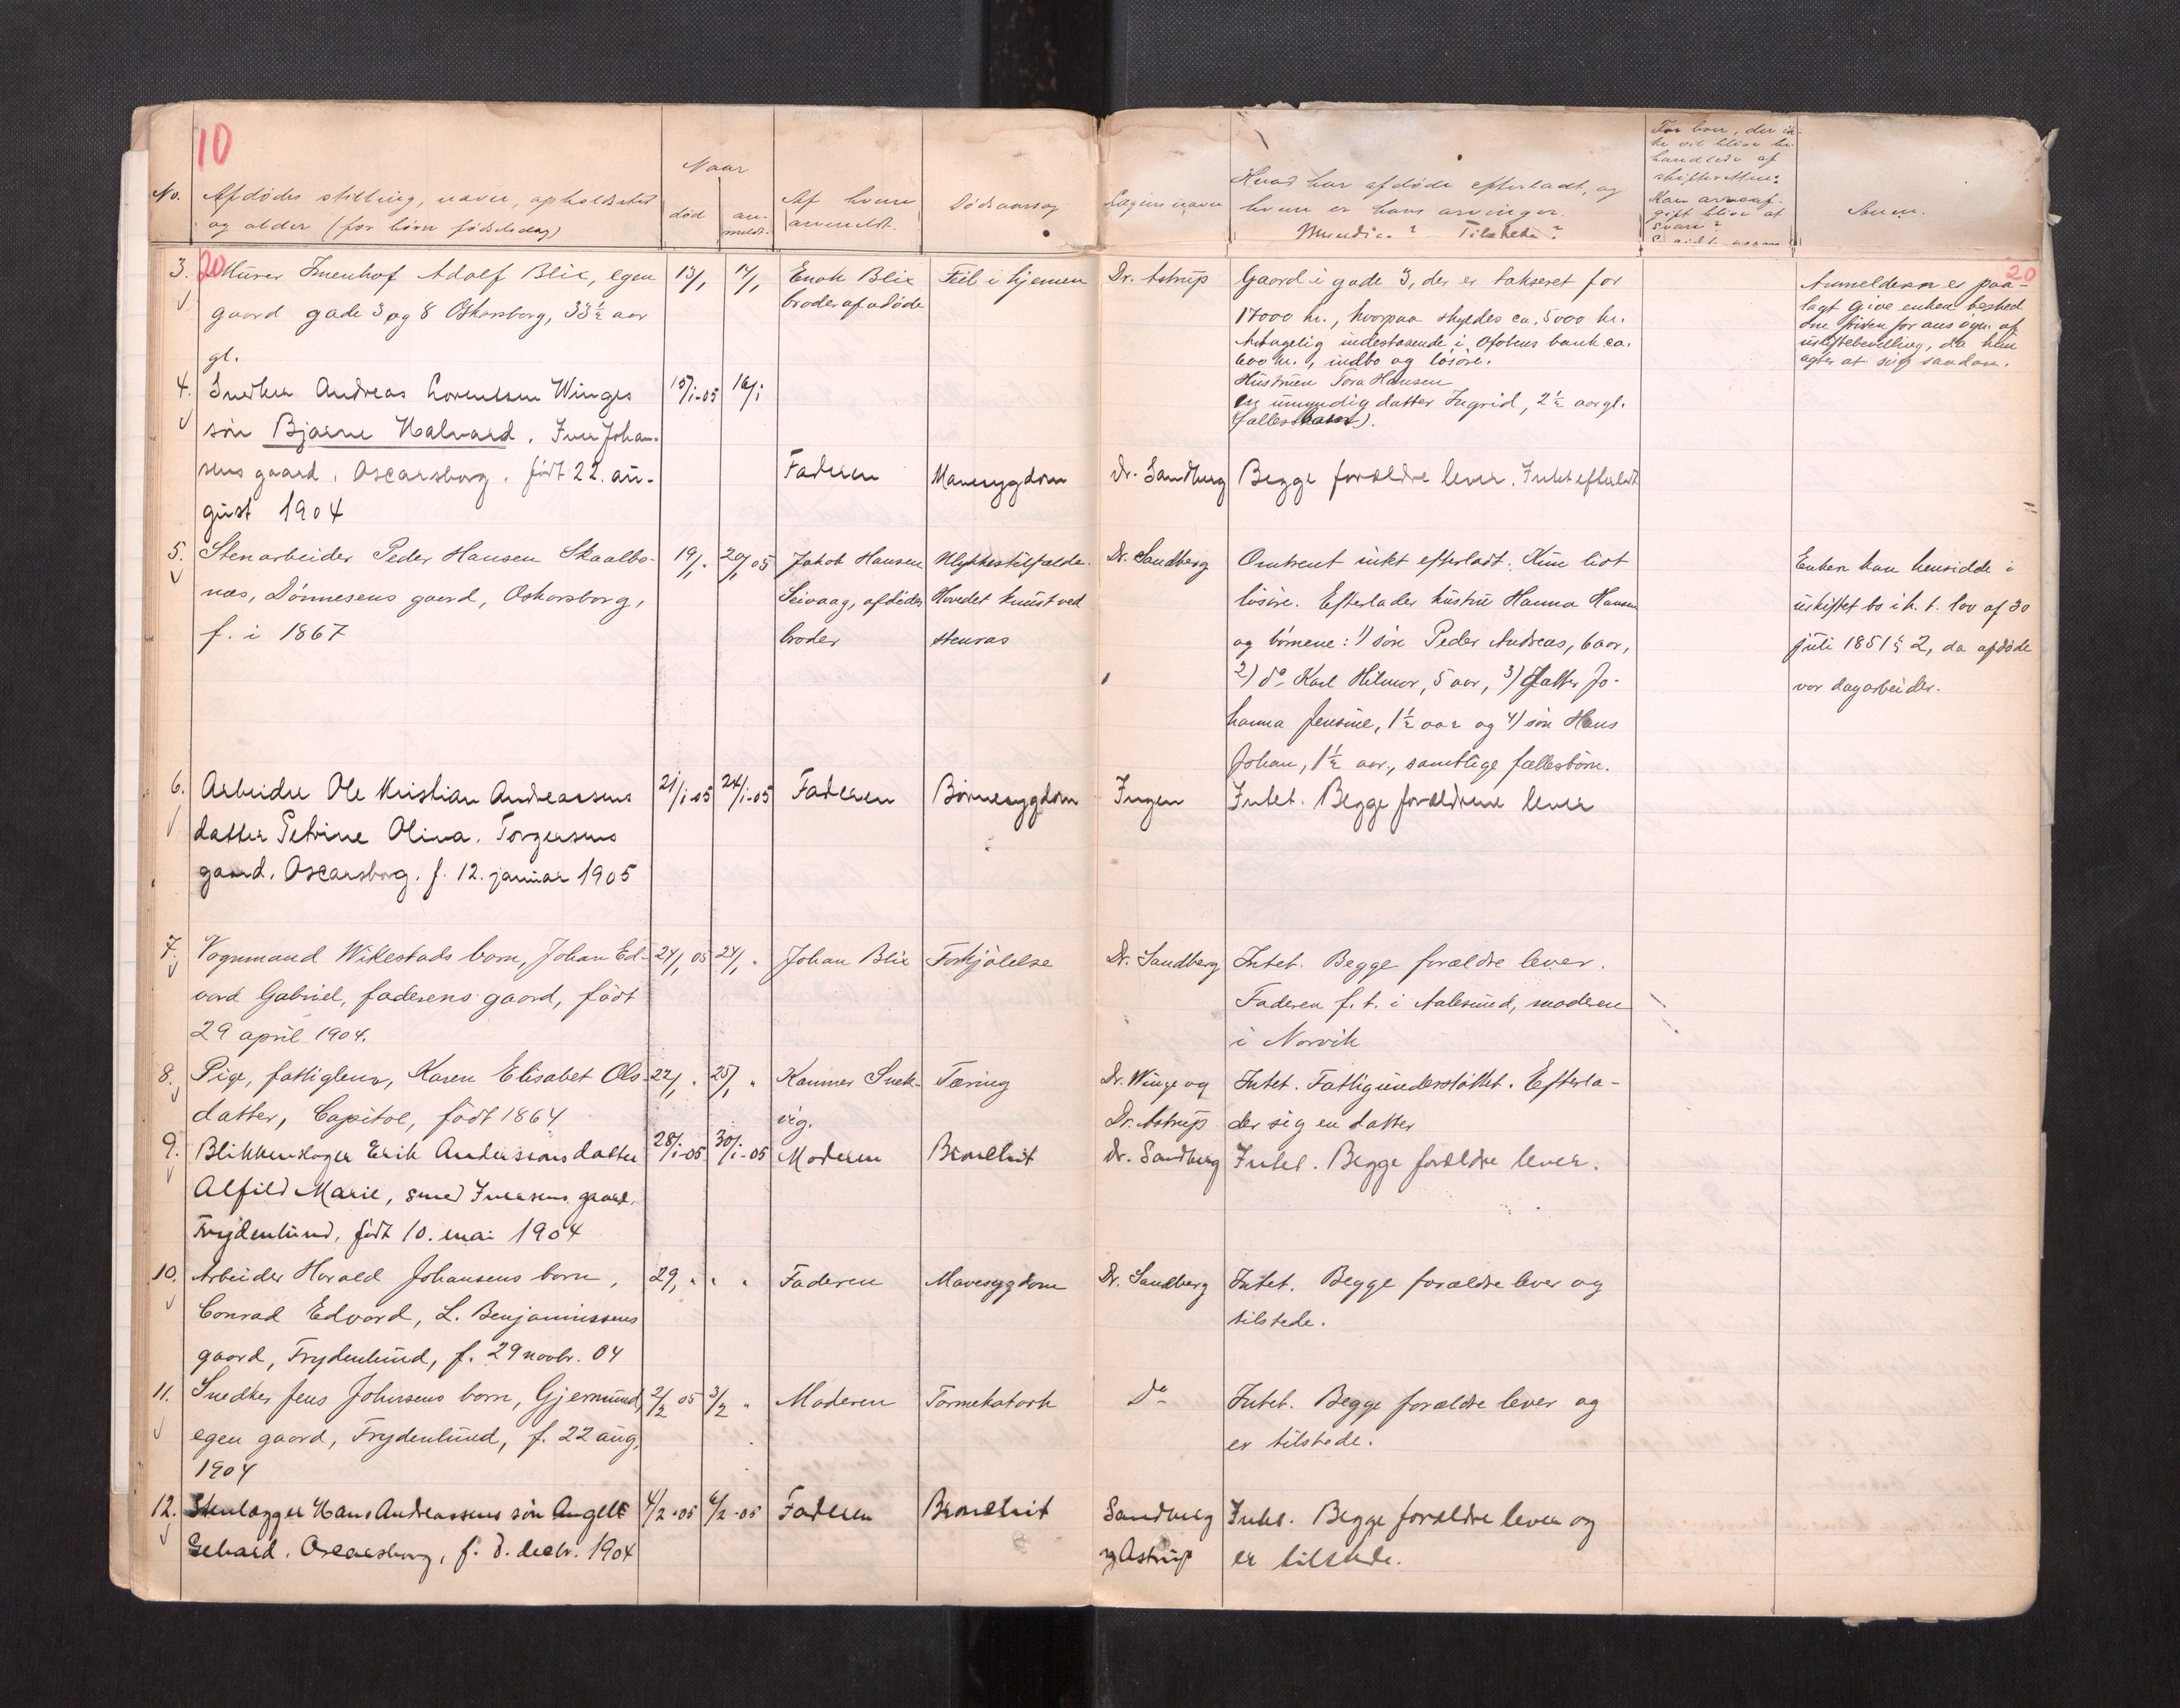 10
No.
Afdødes stilling, navn, opholdssted
og alder (for børn fødselsdag)
Naar
død
an-
meldt.
Af hvem
anmeldt.
Dødsaarsag
Lægens navn
Hvad har afdøde efterladt, og
hvem er hans arvinger.
Myndige? Tilstede?
For boer, der ik-
ke vil blive be-
handlede af
skifteretten:
Kan arveaf-
gift blive at
svare?
Anm.
20
20
3. Murer Imenhof Adolf Blix, egen
gaard gade 3 og 8 Oskarsborg, 33½ aar
gl.
13/1
14/1
Enok Blix
broder af afdøde
Feil i hjernen
Dr. Astrup
Gaard i gade 3, der er takseret for
17000 kr., hvorpaa skyldes ca. 5000 kr.
Antagelig indestaaende i Ofotens bank ca.
600 kr., indbo og løsøre.
Hustruen Tora Hansen
en umyndig datter Ingrid, 2½ aar gl.
(fællesbarn).
Anmelderen er paa-
lagt give enken besked
om fristen for ansøgn. af
uskiftebevilling, da hun
agter at søge saadan.
4. Snedker Andreas Lorentsen Winges
søn Bjarne Halvard, Iver Johan-
sens gaard, Oscarsborg, født 22. au-
gust 1904
15/1-05
16/1
Faderen
Mavesygdom
Dr. Sandberg
Begge forældre lever. Intet efterladt
5. Stenarbeider Peder Hansen Skaalbo-
nes, Dønnesens gaard, Oskarsborg,
f. i 1867
19/1 "
20/1 05
Jakob Hansen
Seivaag, afdødes
broder
Ulykkestilfælde.
Hovedet knust ved
stenras
Dr. Sandberg
Omtrent intet efterladt. Kun lidt
løsøre. Efterlader hustru Hanna Hansen
og børnene: 1) søn Peder Andreas, 6 aar,
2) do Karl Hilmar, 5 aar, 3) Datter Jo-
hanna Jensine, 1½ aar og 4) søn Hans
Johan, 1½ aar, samtlige fællesbørn.
Enken kan hensidde i
uskiftet bo i h. t. lov af 30
juli 1851 § 2, da afdøde
var dagarbeider.
6. Arbeider Ole Kristian Andreassens
datter Petrine Oliva, Torgersens
gaard, Oscarsborg. f. 12. januar 1905
21/1-05
24/1-05
Faderen
Børnesygdom
Ingen
Intet. Begge forældrene lever
7. Vognmand Wikestads barn, Johan Ed-
vard Gabriel, faderens gaard, født
29 april 1904.
24/1 05
24/1 "
Johan Blix
Forkjølelse
Dr. Sandberg
Intet. Begge forældre lever.
Faderen f. t. i Aalesund, moderen
i Narvik
8. Pige, fattiglem, Karen Elisabet Ols-
datter, Capitol, født 1864
22/1 "
25/1 "
Kanner Snek-
vig.
Tæring
Dr. Winge og
Dr. Astrup
Intet. Fattigunderstøttet. Efterla-
der sig en datter
9. Blikkenslager Erik Andersens datter
Alfild Marie, smed Iversens gaard,
Frydenlund, født 10. mai 1904
28/1-05
30/1-05
Moderen
Bronchit
Dr. Sandberg
Intet. Begge forældre lever.
10. Arbeider Harald Johansens barn,
Conrad Edvard, L. Benjaminsens
gaard, Frydenlund, f. 29 novbr. 04
29/1 "
" "
Faderen
Mavesygdom
Dr. Sandberg
Intet. Begge forældre lever og
tilstede.
11. Snedker Jens Johnsens barn, Gjermund,
egen gaard, Frydenlund, f. 22 aug.
1904
2/2 05
3/2 "
Moderen
Tarmekatarh
Do
Intet. Begge forældre lever og
er tilstede.
12. Stenlægger Hans Andreassens søn Angell
Gehard. Oscarsborg, f. 8. decbr. 1904
4/2-05
6/2-05
Faderen
Bronchit
Sandberg
og Astrup
Intet. Begge forældre lever og
er tilstede.